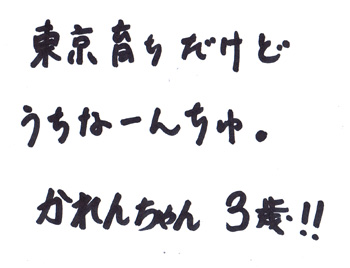 東京育ちだけど
うちなーんちゅ。
かれんちゃん 3歳!!